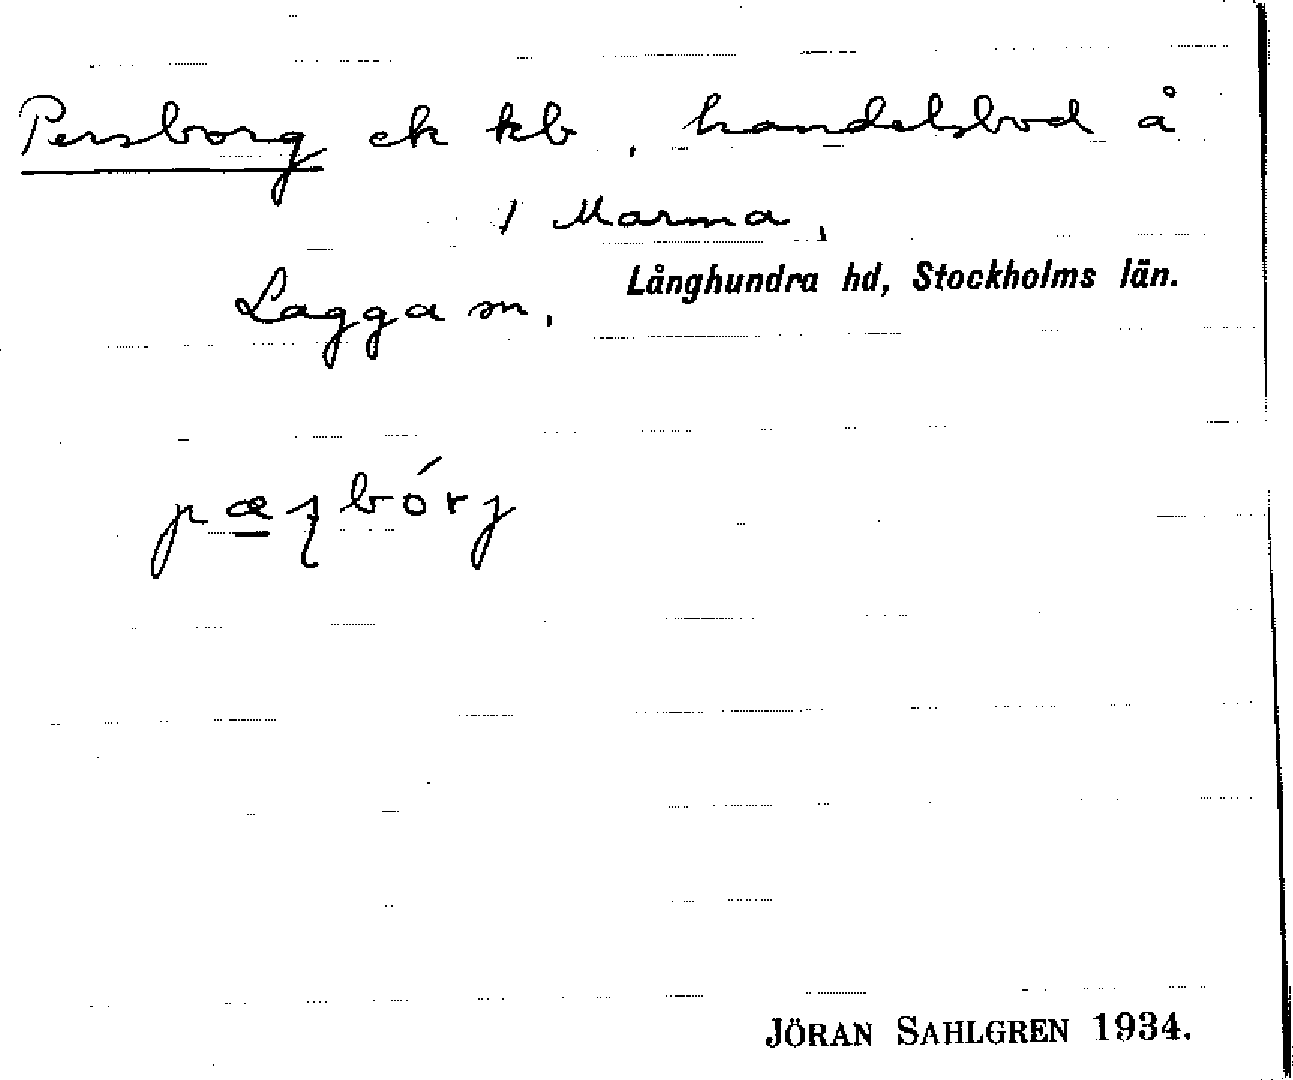 Persborg ek kb, handelsbod å
1 Marma,
Lagga sn, Långhundra hd, Stockholms län.
JÖRAN SAHLGREN 1934.